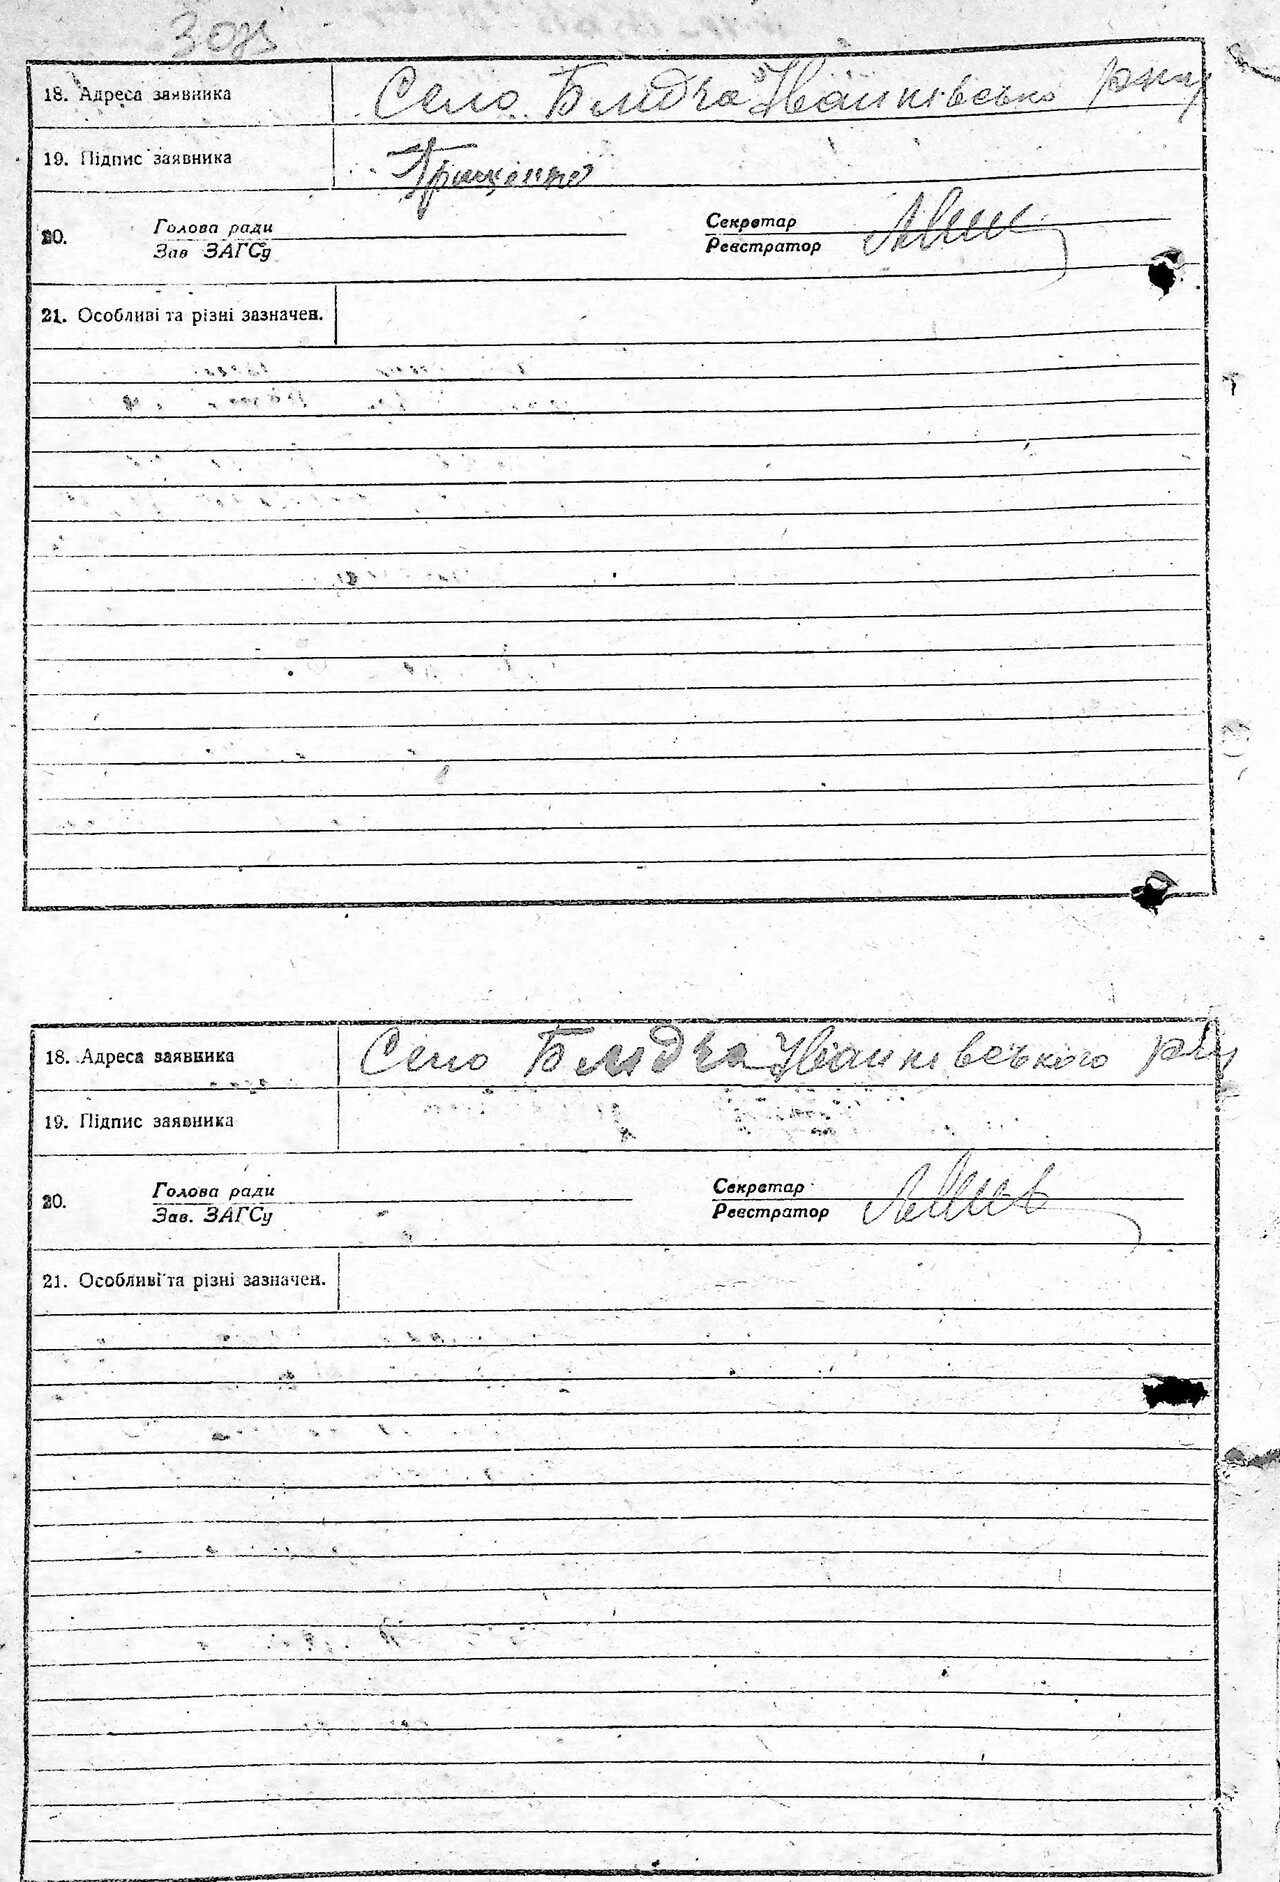 30зв
18. Адреса заявника Село Блидча Іванківсько р-ну
19. Підпис заявника Гриценко
20. Голова ради Секретар
Зав ЗАГСу Реєстратор
21. Особливі та різні зазначен.
18. Адреса заявника Село Блидча Іванківського р-ну
19. Підпис заявника
20. Голова ради Секретар
Зав. ЗАГСу Реєстратор
21. Особливі та різні зазначен.